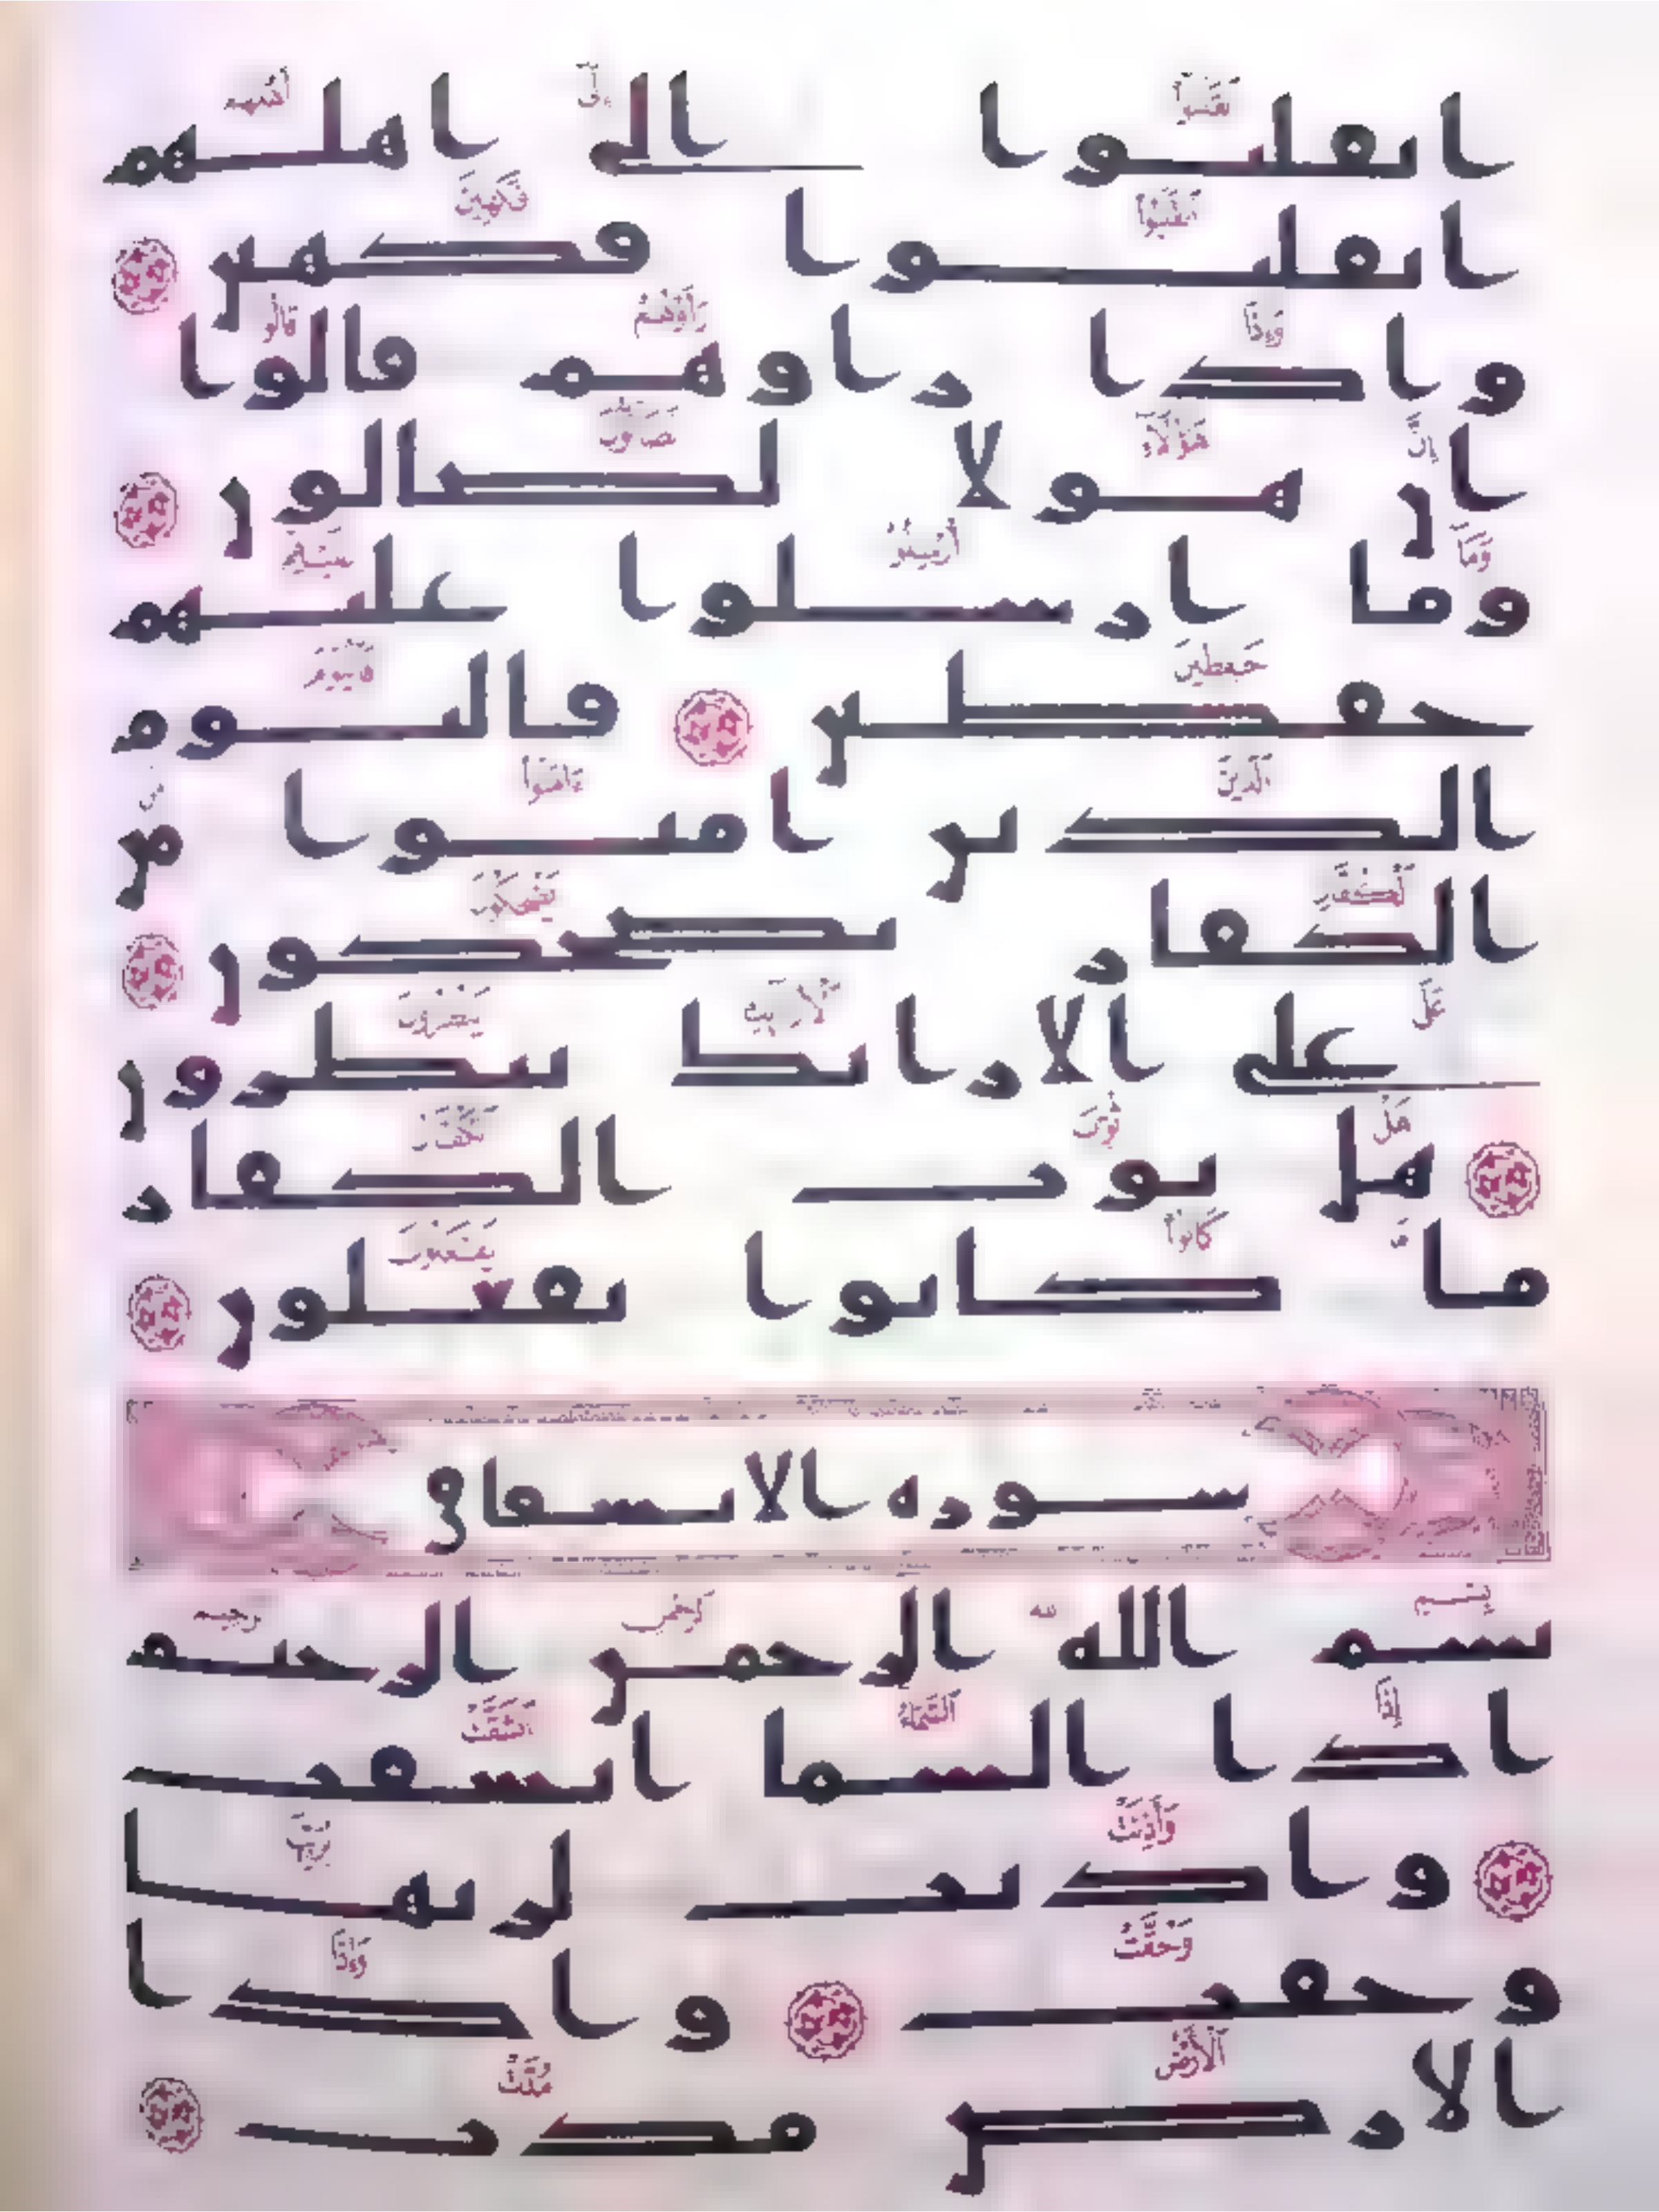 انقلبوا الى اهلهم
انقلبوا فكهين
واذا راوهم قالوا
ان هولا لضالون
وما ارسلوا عليهم
حفظين فاليوم
الذين امنوا من
الكفار يضحكون
على الارائك ينظرون
هل ثوب الكفار
ما كانوا يفعلون
سورة الانشقاق
بسم الله الرحمن الرحيم
اذا السما انشقت
واذنت لربها
وحقت واذا
الارض مدت